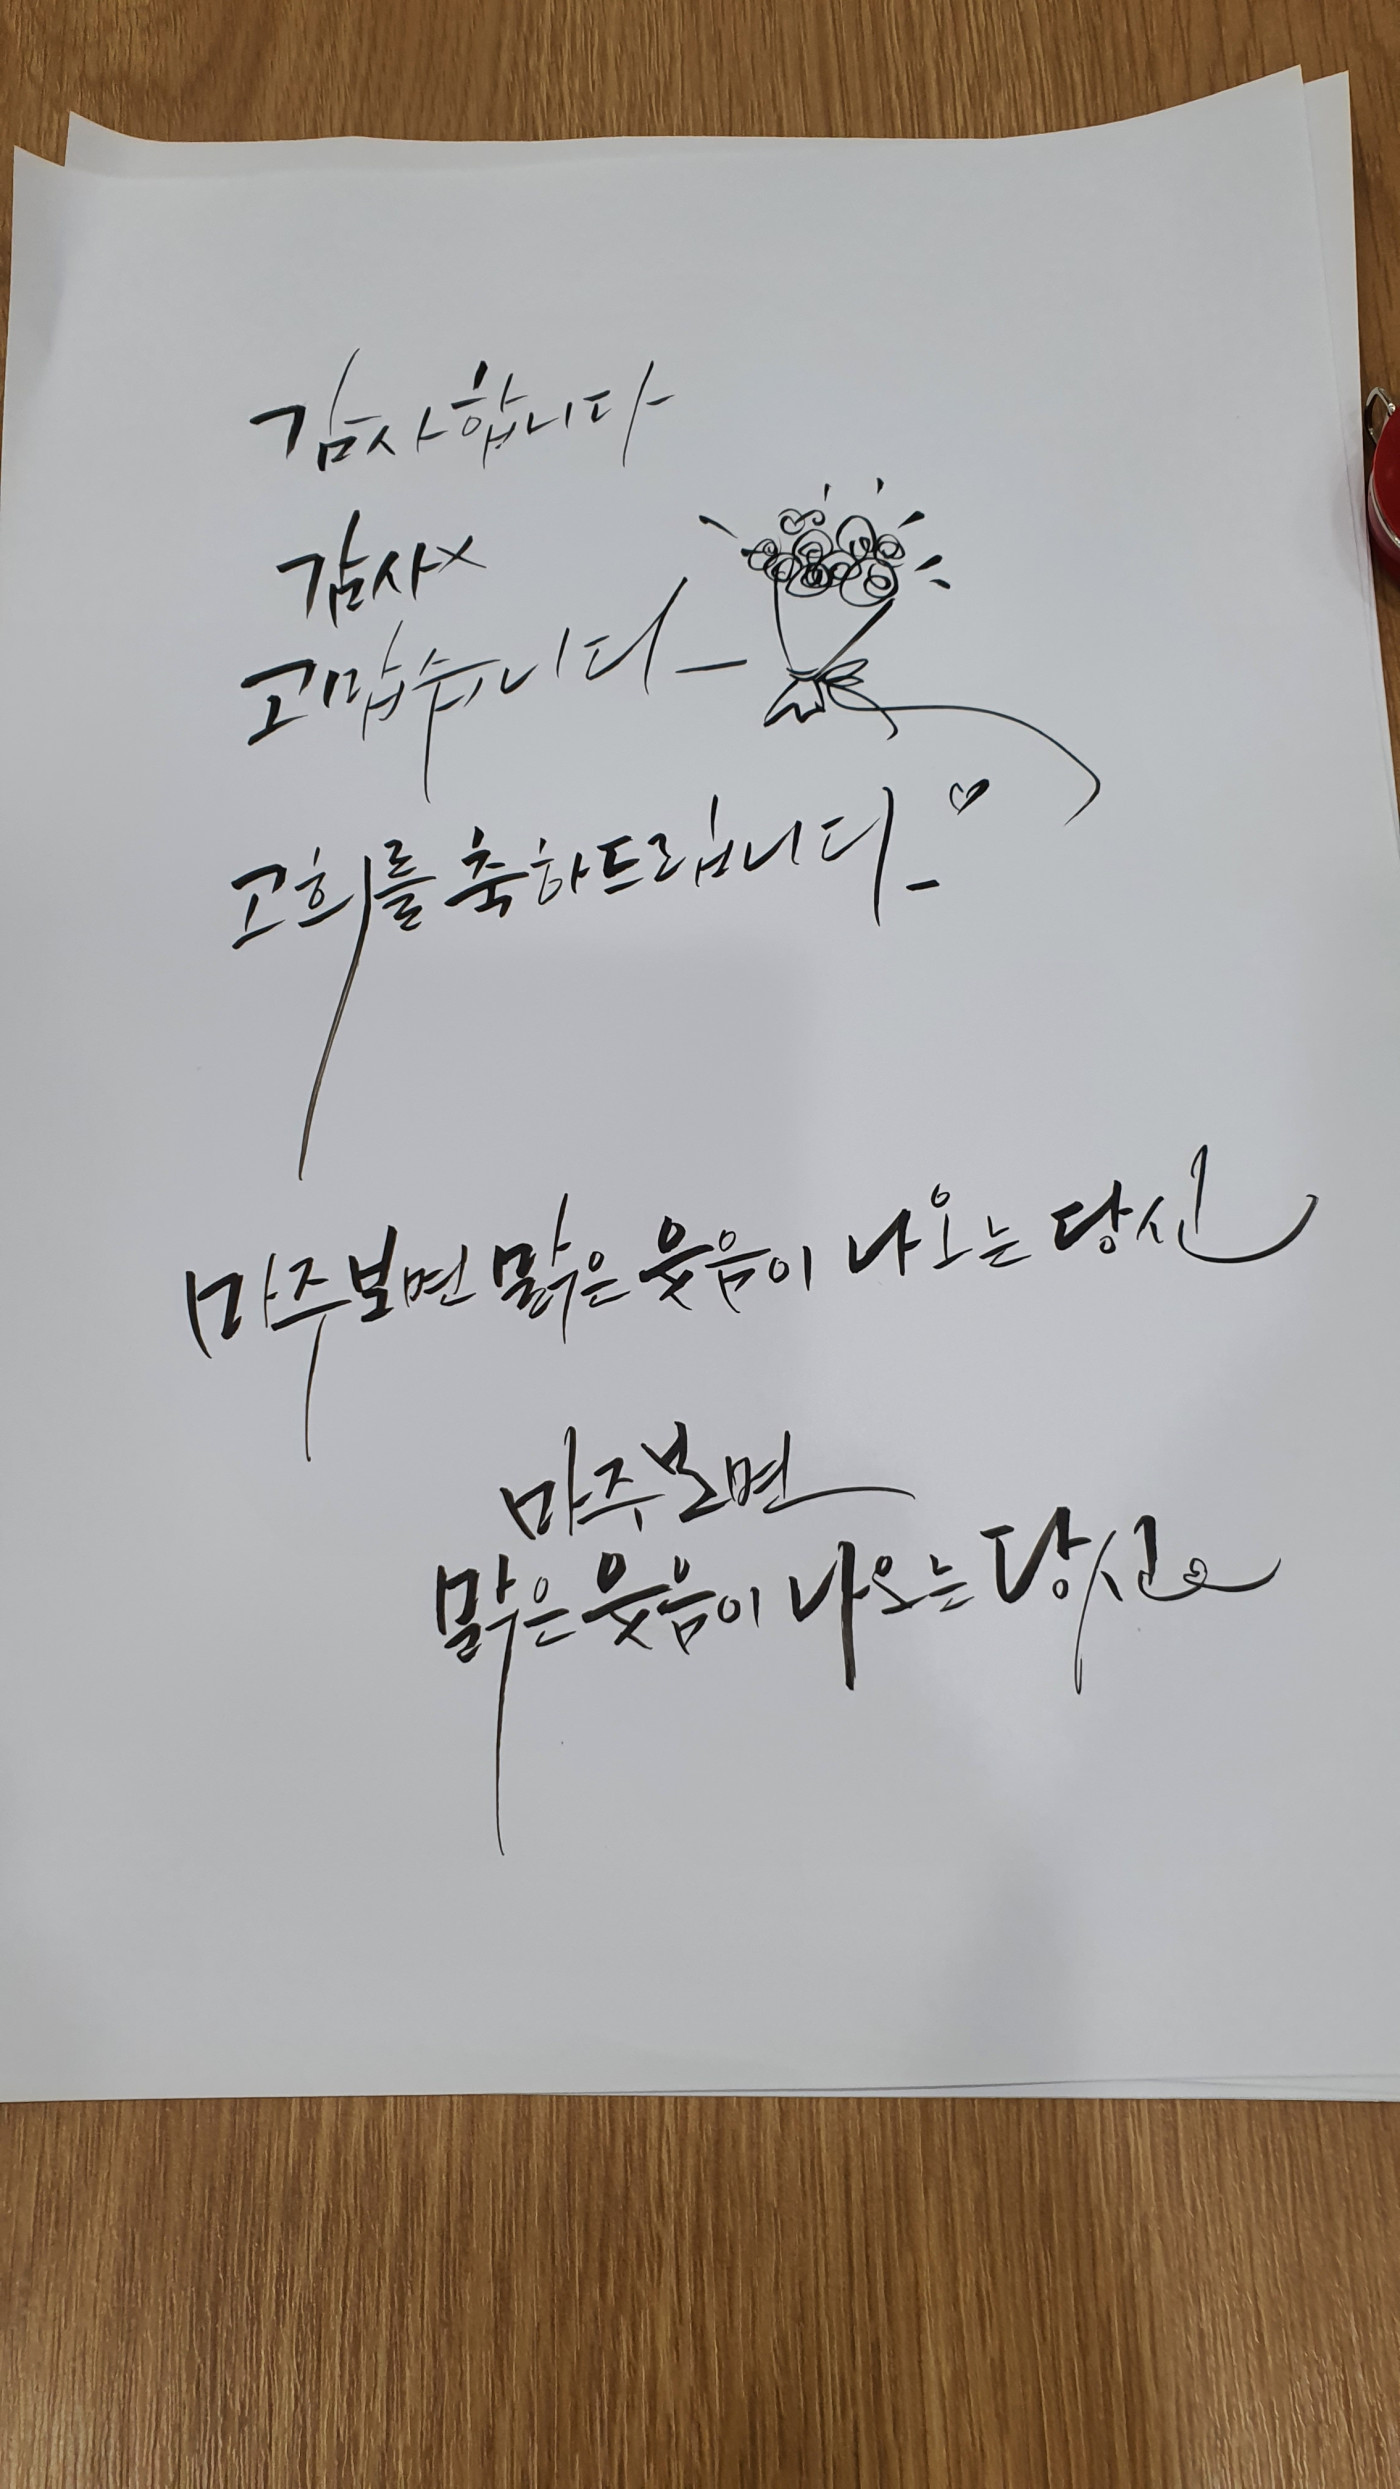 감사합니다
감사x
고맙습니다
고희를 축하드립니다
마주보면 맑은 웃음이 나오는 당신
마주보면
맑은 웃음이 나오는 당신